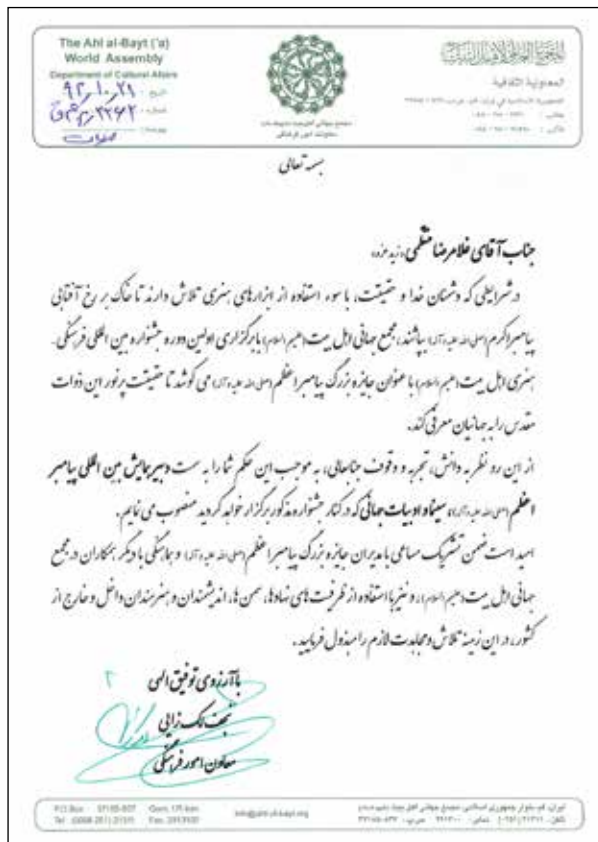 The Ahl al-Bayt ('a)
World Assembly
Department of Cultural Affairs
۹۲/۱۰/۲۱
المعاونية الثقافية
مجمع جهانی اهل بیت
معاونت امور فرهنگی
بسمه تعالی
جناب آقای غلامرضا منتظمی
در شرایطی که دشمنان خدا و حقیقت، با سوء استفاده از ابزارهای هنری تلاش دارند تا خاک بر رخ آفتابی
پیامبر اکرم (صلی الله علیه و آله) بپاشند، مجمع جهانی اهل بیت (علیهم السلام) با برگزاری اولین دوره جشنواره بین المللی فرهنگی
هنری اهل بیت (علیهم السلام) با عنوان جایزه بزرگ پیامبر اعظم (صلی الله علیه و آله) می کوشد تا حقیقت پرنور این ذوات
مقدس را به جهانیان معرفی کند.
از این رو نظر به دانش، تجربه و وقوف جنابعالی، به موجب این حکم شما را به سمت دبیر همایش بین المللی پیامبر
اعظم (صلی الله علیه و آله)، سینما و ادبیات جهانی که در کنار جشنواره مذکور برگزار خواهد گردید منصوب می نمایم.
امید است ضمن تشریک مساعی با مدیران جایزه بزرگ پیامبر اعظم (صلی الله علیه و آله) و هماهنگی با دیگر همکاران در مجمع
جهانی اهل بیت (علیهم السلام)، و نیز با استفاده از ظرفیت های نهادها، سمن ها، اندیشمندان و هنرمندان داخل و خارج از
کشور، در این زمینه تلاش و مجاهدت لازم را مبذول فرمایید.
با آرزوی توفیق الهی
نجف لک زایی
معاون امور فرهنگی
P.O.Box: 37185-837 Qom, I.R.Iran